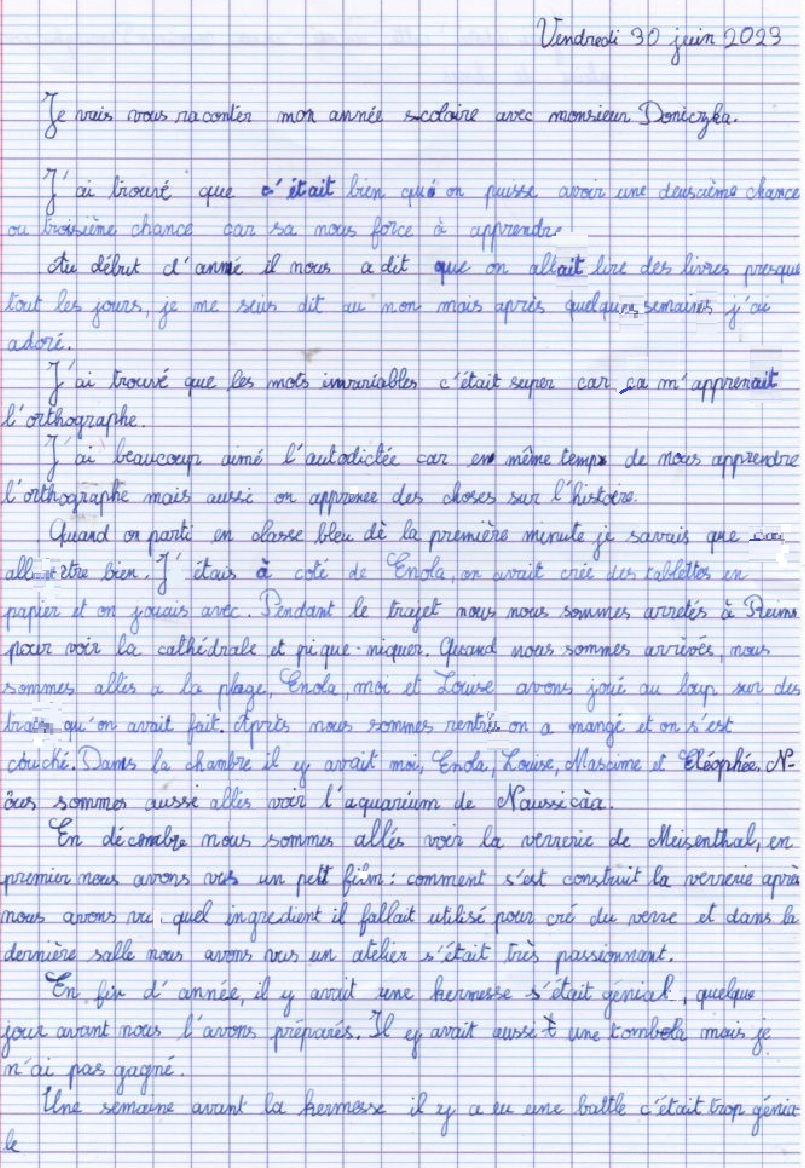 Vendredi 30 juin 2023
Je vais vous raconter mon année scolaire avec monsieur Doniczka.
J'ai trouvé que c'était bien qué on puisse avoir une deuxième chance
ou troisième chance car sa nous force à apprendre
Au début d'anné il nous a dit que on allait lire des livres presque
tout les jours, je me suis dit au non mais après quelques semaines j'ai
adoré.
J'ai trouvé que les mots invariables c'était super car ça m'apprenait
l'orthographe.
J'ai beaucoup aimé l'autodictée car en même temps de nous apprendre
l'orthographe mais aussi on apprenee des choses sur l'histoire.
Quand on parti en classe bleu dè la première minute je savais que
allait être bien. J'étais à coté de Enola, on avait crée des tablettes en
papier et on jouais avec. Pendant le trajet nous nous sommes arretés à Reims
pour voir la cathédrale et pique-niquer. Quand nous sommes arrivés, nous
sommes allés a la plage, Enola, moi et Louise avons joué au loup sur des
traces qu'on avait fait. Après nous sommes rentrés on a mangé et on s'est
couché. Dans la chambre il y avait moi, Enola, Louise, Maxime et Cléophée. N-
ous sommes aussi allés voir l'aquarium de Naussicàa.
En décembre nous sommes allés voir la verrerie de Meisenthal, en
premier nous avons vus un petit film : comment s'est construit la verrerie après
nous avons vu quel ingredient il fallait utilisé pour cré du verre et dans la
dernière salle nous avons vus un atelier s'était très passionnant.
En fin d'année, il y avait une kermesse s'était génial, quelque
jour avant nous l'avons préparés. Il y avait aussi une tombola mais je
n'ai pas gagné.
Une semaine avant la kermesse il y a eu une battle c'était trop génia
le